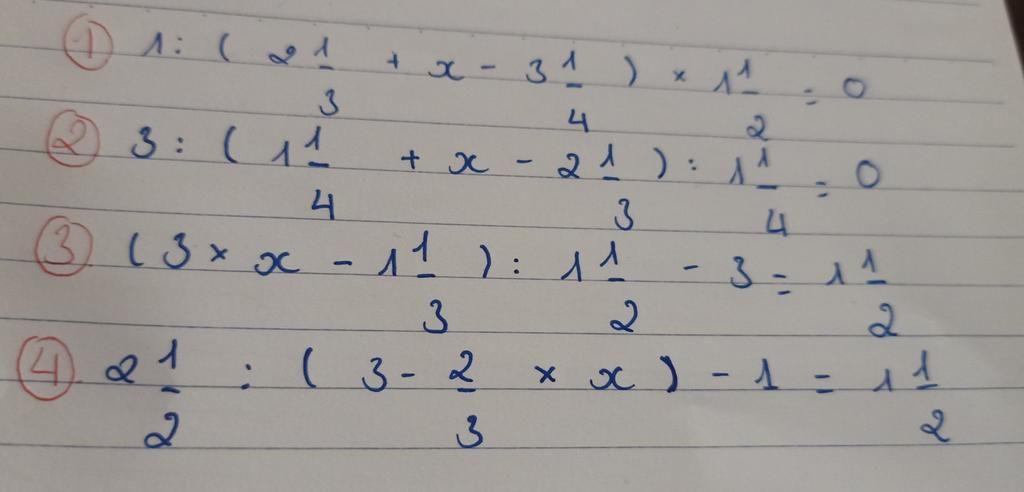 ① 1 : ( 2 1/3 + x - 3 1/4 ) × 1 1/2 = 0
② 3 : ( 1 1/4 + x - 2 1/3 ) : 1 1/4 = 0
③ ( 3 × x - 1 1/3 ) : 1 1/2 - 3 = 1 1/2
④ 2 1/2 : ( 3 - 2/3 × x ) - 1 = 1 1/2